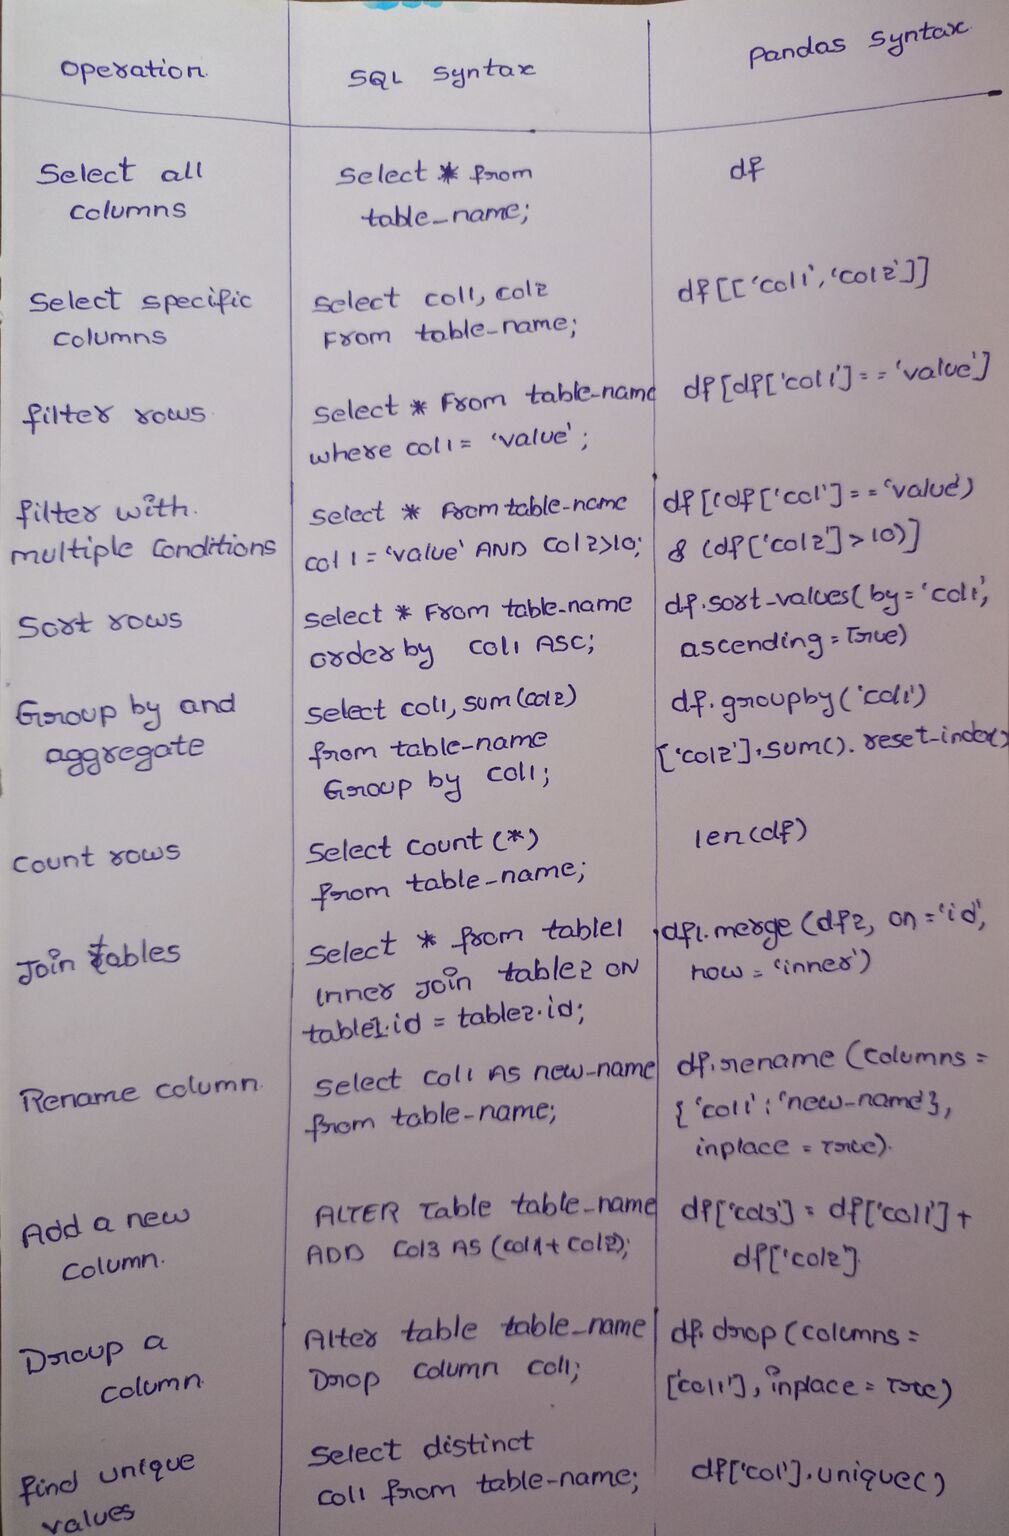 Operation.
SQL Syntax
Pandas Syntax
Select all
columns
Select * from
table_name;
df
Select specific
columns
Select col1, col2
From table_name;
df[['col1', 'col2']]
filter rows
Select * From table_name
where col1 = 'value';
df[df['col1'] == 'value']
filter with.
multiple Conditions
Select * From table_name
col1 = 'value' AND col2>10;
df[(df['col'] == 'value')
& (df['col2'] > 10)]
Sort rows
Select * From table_name
order by col1 ASC;
df.sort_values(by='col1',
ascending = True)
Group by and
aggregate
Select col1, sum(col2)
from table_name
Group by col1;
df.groupby('col1')
['col2'].sum().reset_index()
Count rows
Select count (*)
from table_name;
len(df)
Join tables
Select * from table1
inner join table2 ON
table1.id = table2.id;
df1.merge (df2, on = 'id',
how = 'inner')
Rename column.
Select col1 AS new_name
from table_name;
df.rename (columns =
{'col1' : 'new_name'},
inplace = True).
Add a new
column.
ALTER Table table_name
ADD Col3 AS (col1 + col2);
df['col3'] = df['col1'] +
df['col2'].
Droup a
column.
Alter table table_name
Drop column col1;
df.drop (columns =
['col1'], inplace = True)
find unique
values
Select distinct
col1 from table_name;
df['col'].unique()